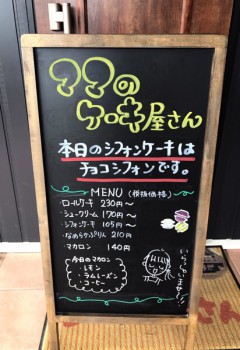 ママの
ケーキ屋さん
本日のシフォンケーキは
チョコシフォンです。
MENU (税抜価格)
・ロールケーキ 230円〜
・シュークリーム 170円〜
・シフォンケーキ 105円〜
・なめらかぷりん 210円
・マカロン 140円
今日のマカロン
・レモン
・ラムレーズン
・コーヒー
いらっしゃいませ!